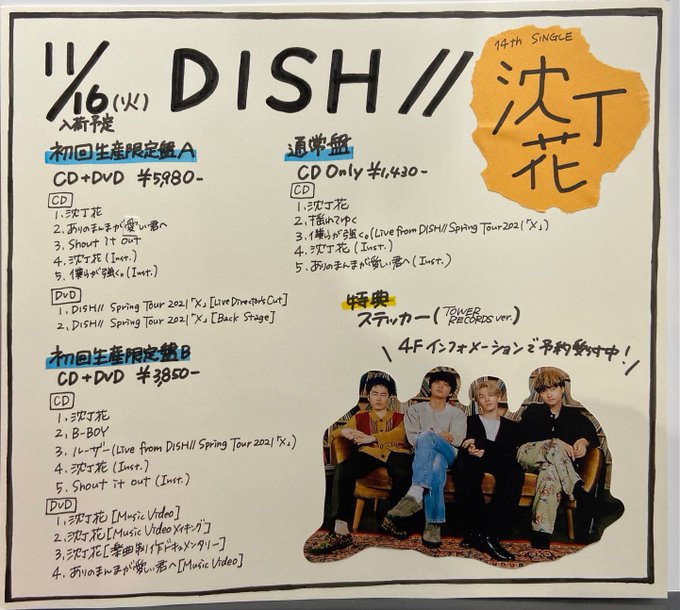 11/16(火)
入荷予定
DISH//
14th SINGLE
沈丁花
初回生産限定盤A
CD+DVD ¥5,980-
CD
1. 沈丁花
2. ありのまんまが愛しい君へ
3. Shout it out
4. 沈丁花(Inst.)
5. 僕らが強く。(Inst.)
DVD
1. DISH// Spring Tour 2021「X」[Live Director's Cut]
2. DISH// Spring Tour 2021「X」[Back Stage]
初回生産限定盤B
CD+DVD ¥3,850-
CD
1. 沈丁花
2. B-BOY
3. ルーザー(Live from DISH// Spring Tour 2021「X」)
4. 沈丁花(Inst.)
5. Shout it out (Inst.)
DVD
1. 沈丁花[Music Video]
2. 沈丁花[Music Video メイキング]
3. 沈丁花[楽曲制作ドキュメンタリー]
4. ありのまんまが愛しい君へ[Music Video]
通常盤
CD Only ¥1,430-
CD
1. 沈丁花
2. 揺れてゆく
3. 僕らが強く。(Live from DISH// Spring Tour 2021「X」)
4. 沈丁花(Inst.)
5. ありのまんまが愛しい君へ(Inst.)
特典
ステッカー(TOWER RECORDS ver.)
\ 4Fインフォメーションで予約受付中! /